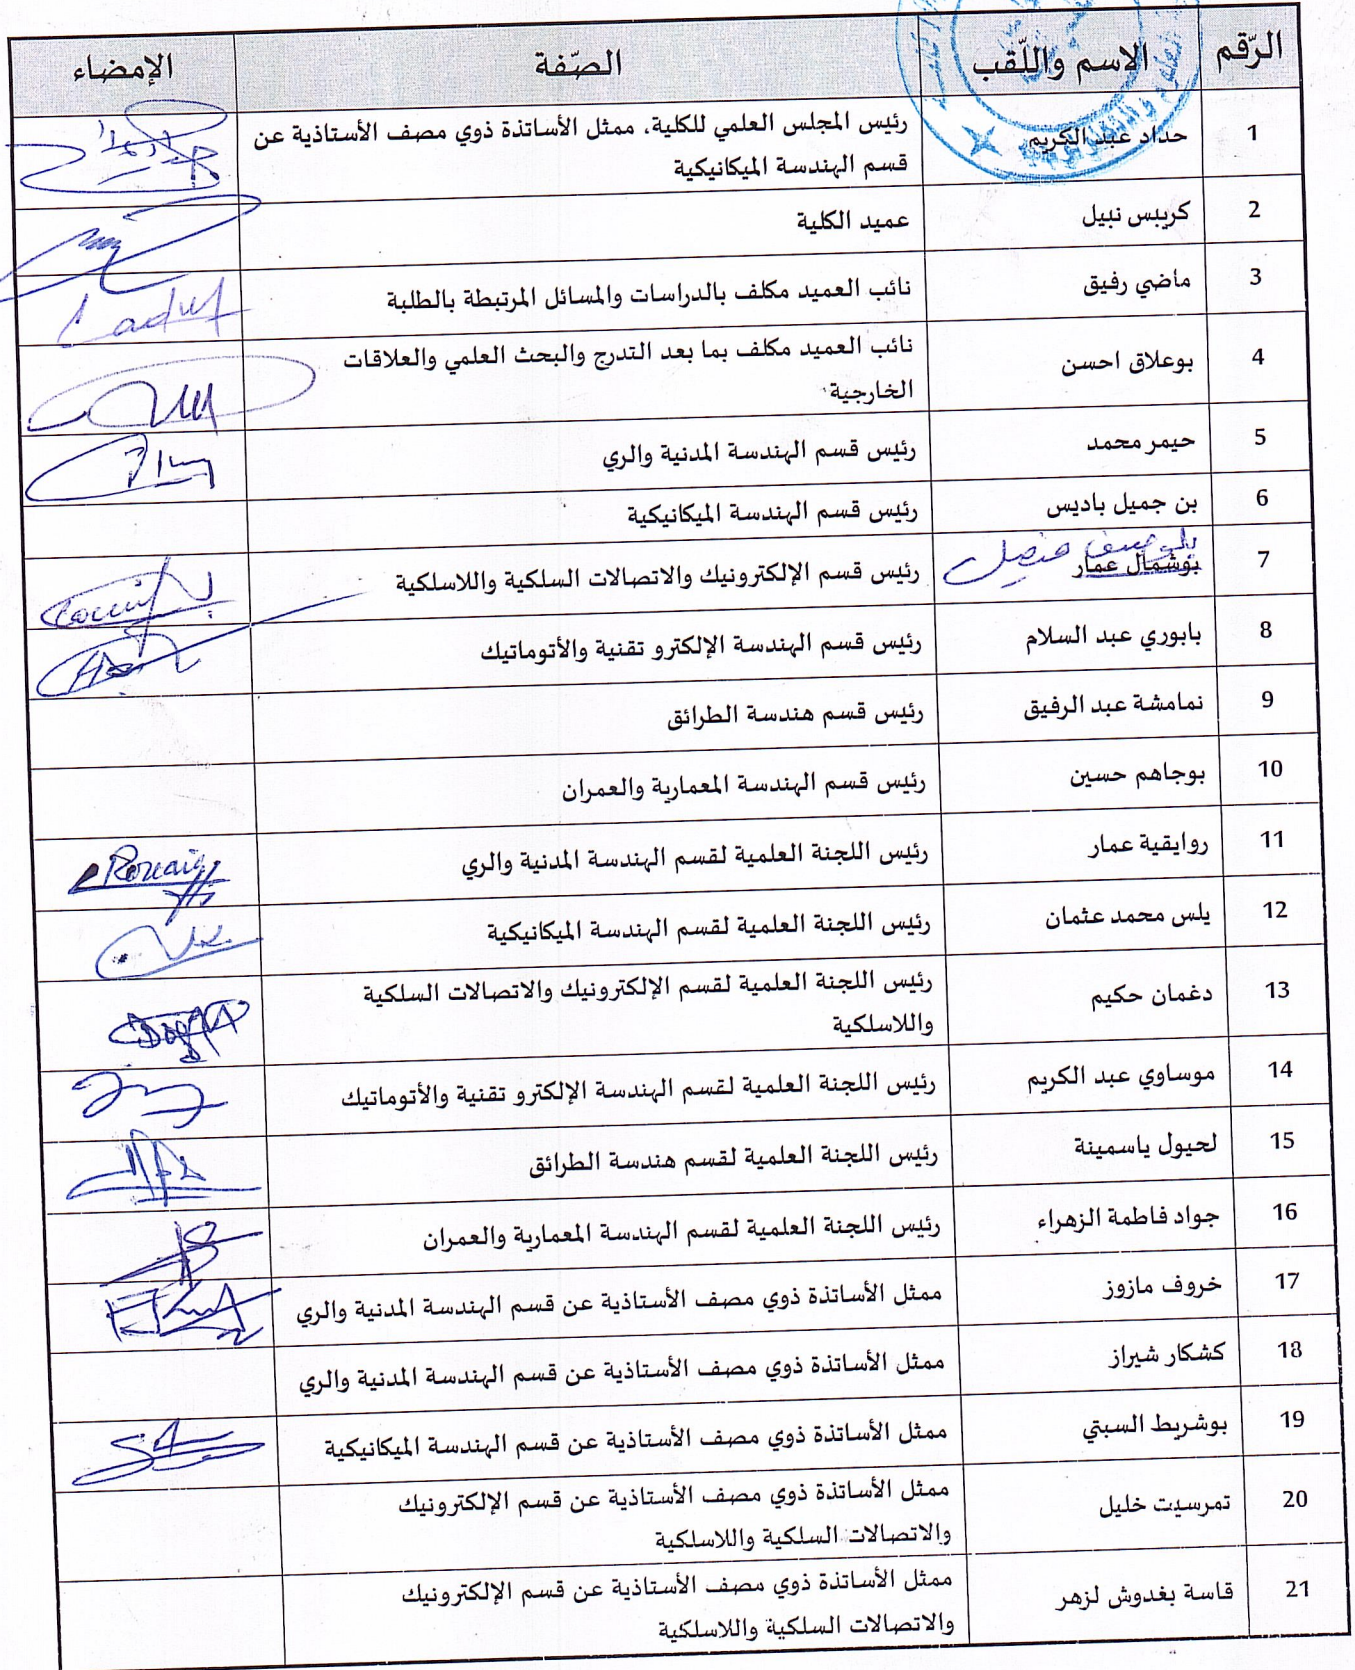 الرّقم الاسم واللّقب الصّفة الإمضاء
1 حداد عبد الكريم رئيس المجلس العلمي للكلية، ممثل الأساتذة ذوي مصف الأستاذية عن
قسم الهندسة الميكانيكية
2 كريبس نبيل عميد الكلية
3 ماضي رفيق نائب العميد مكلف بالدراسات والمسائل المرتبطة بالطلبة
4 بوعلاق احسن نائب العميد مكلف بما بعد التدرج والبحث العلمي والعلاقات
الخارجية
5 حيمر محمد رئيس قسم الهندسة المدنية والري
6 بن جميل باديس رئيس قسم الهندسة الميكانيكية
7 بوشمال عمار رئيس قسم الإلكترونيك والاتصالات السلكية واللاسلكية
8 بابوري عبد السلام رئيس قسم الهندسة الإلكترو تقنية والأتوماتيك
9 نمامشة عبد الرفيق رئيس قسم هندسة الطرائق
10 بوجاهم حسين رئيس قسم الهندسة المعمارية والعمران
11 روايقية عمار رئيس اللجنة العلمية لقسم الهندسة المدنية والري
12 يلس محمد عثمان رئيس اللجنة العلمية لقسم الهندسة الميكانيكية
13 دغمان حكيم رئيس اللجنة العلمية لقسم الإلكترونيك والاتصالات السلكية
واللاسلكية
14 موساوي عبد الكريم رئيس اللجنة العلمية لقسم الهندسة الإلكترو تقنية والأتوماتيك
15 لحيول ياسمينة رئيس اللجنة العلمية لقسم هندسة الطرائق
16 جواد فاطمة الزهراء رئيس اللجنة العلمية لقسم الهندسة المعمارية والعمران
17 خروف مازوز ممثل الأساتذة ذوي مصف الأستاذية عن قسم الهندسة المدنية والري
18 كشكار شيراز ممثل الأساتذة ذوي مصف الأستاذية عن قسم الهندسة المدنية والري
19 بوشريط السبتي ممثل الأساتذة ذوي مصف الأستاذية عن قسم الهندسة الميكانيكية
20 تمرسيت خليل ممثل الأساتذة ذوي مصف الأستاذية عن قسم الإلكترونيك
والاتصالات السلكية واللاسلكية
21 قاسة بغدوش لزهر ممثل الأساتذة ذوي مصف الأستاذية عن قسم الإلكترونيك
والاتصالات السلكية واللاسلكية